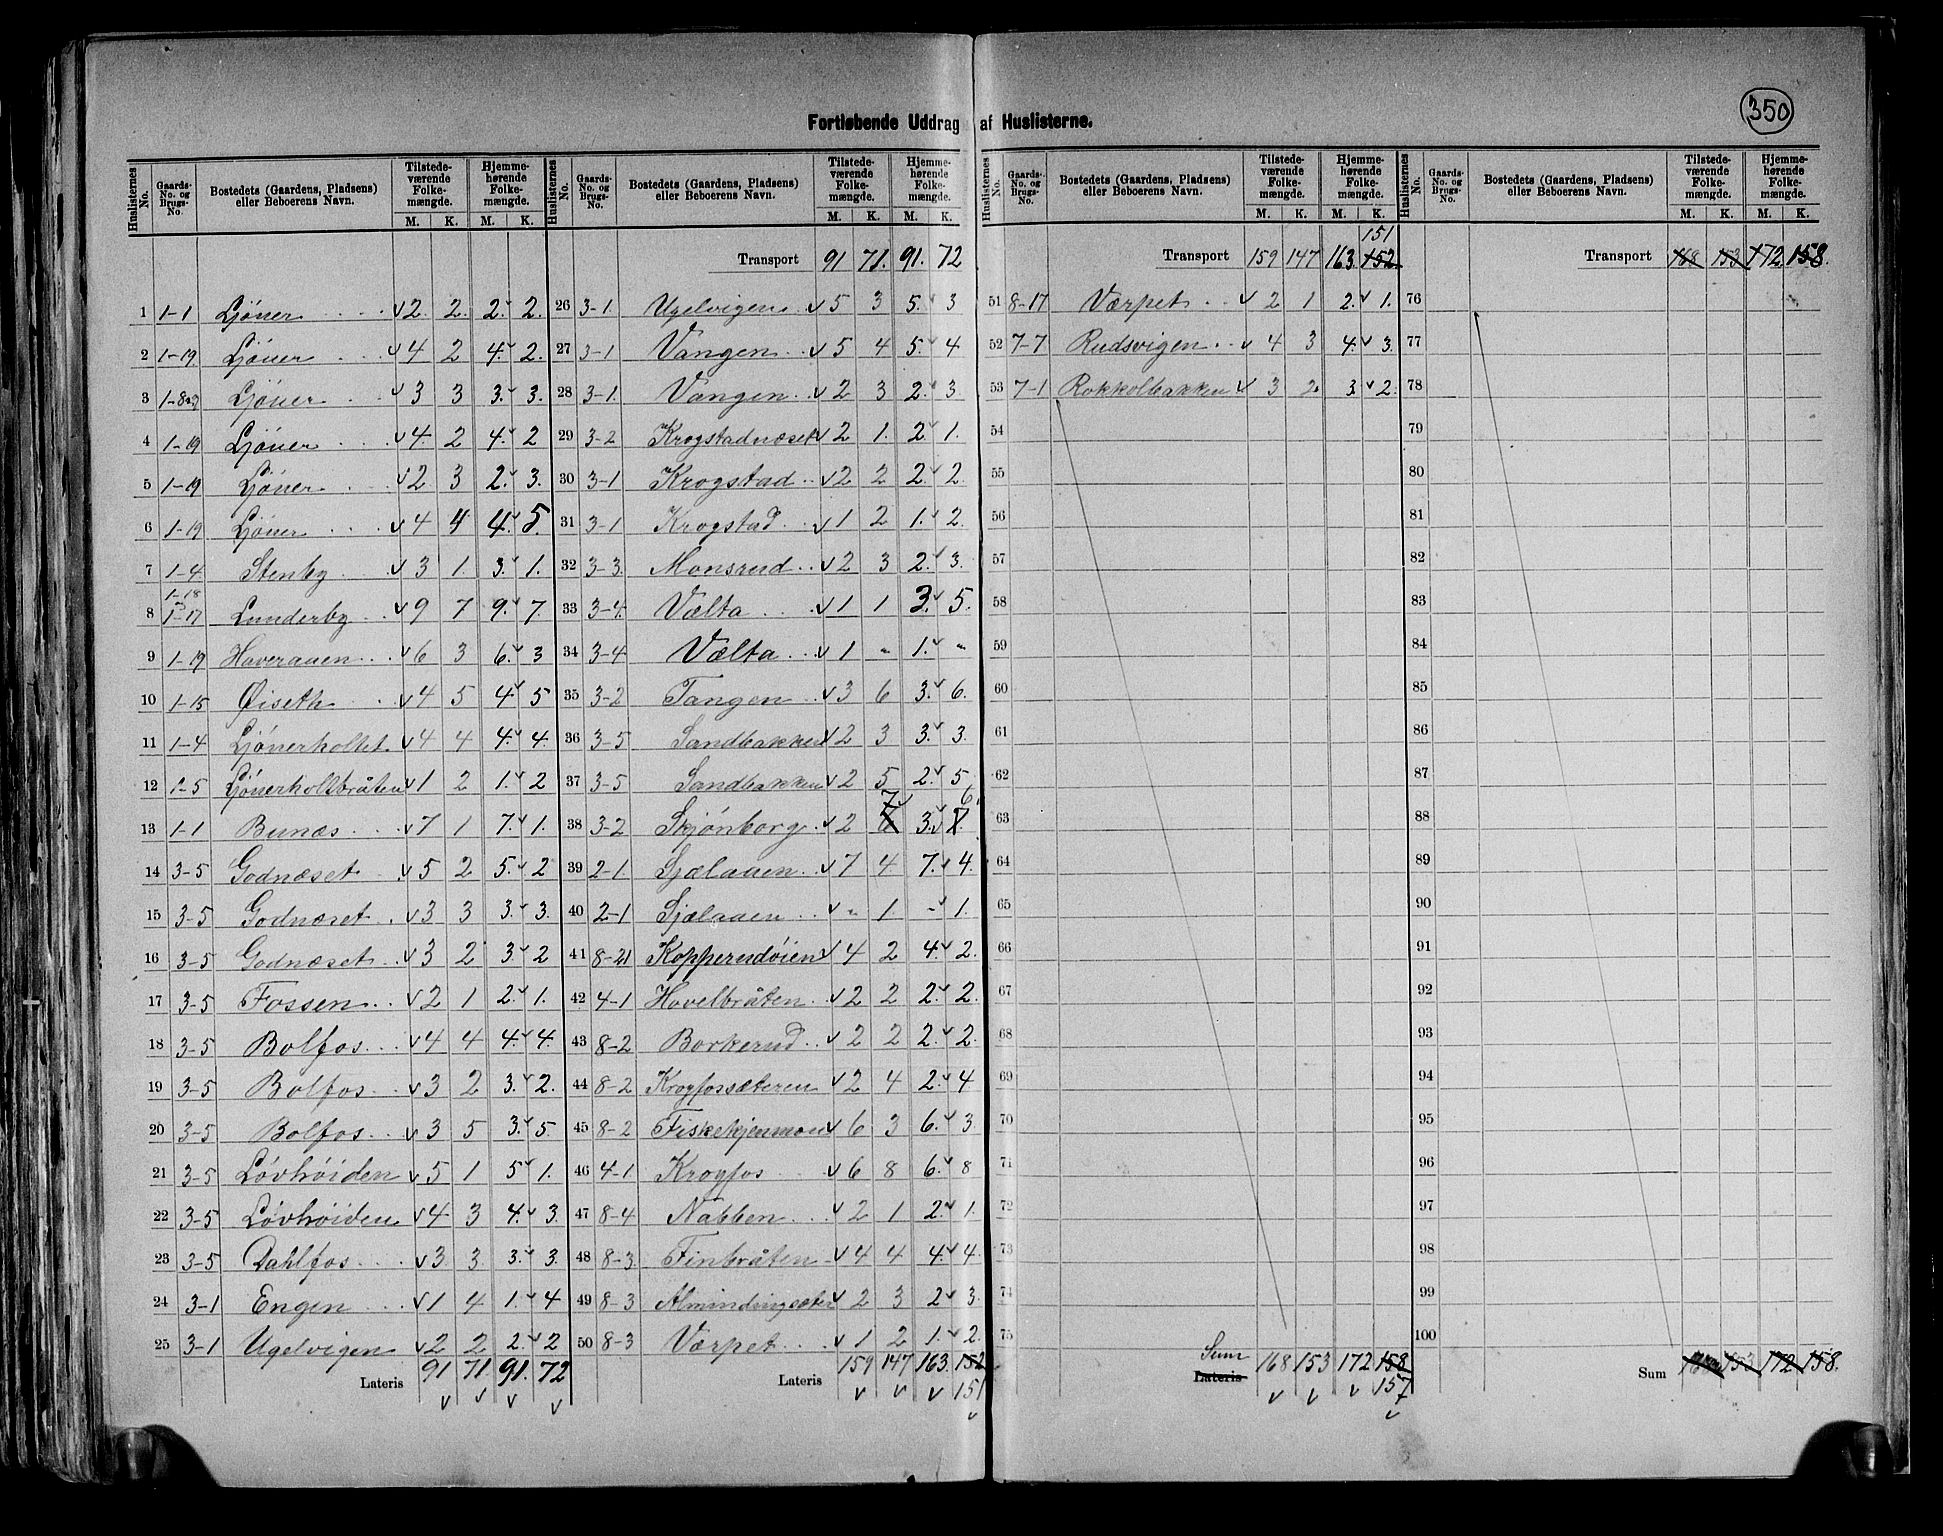 350
Fortløbende Uddrag af Huslisterne.
Huslisternes No. | Gaards-No. og Brugs-No. | Bostedets (Gaardens, Pladsens) eller Beboerens Navn. | Tilstedeværende Folkemængde. M. K. | Hjemmehørende Folkemængde. M. K.
1 1-1 Ljöner v 2. 2. 2. v 2.
2 1-19 Ljöner v 4 2 4. v 2.
3 Ljöner v 3 3 3. v 3.
4 1-19 Ljöner v 4. 2 4. v 2
5 1-19 Ljöner v 2 3 2. v 3.
6 1-19 Ljöner v 4 4 4. v 5.
7 1-4 Stenby v 3 1. 3. v 1.
8 1-18 1-17 Lunderby v 9 7 9. v 7.
9 1-19 Haveraaen v 6 3 6. v 3
10 1-15 Øiseth v 4 5 4. v 5
11 1-4 Ljönerholtet v 4 4 4. v 4.
12 1-5 Ljönerholtbråten v 1 2 1. v 2
13 1-1 Bunæs v 7 1 7. v 1.
14 3-5 Godnæset v 5 2 5. v 2
15 3-5 Godnæset v 3 3 3. v 3.
16 3-5 Godnæset v 3 2 3 v 2
17 3-5 Fossen v 2 1 2. v 1.
18 3-5 Bolfos v 4 4 4. v 4.
19 3-5 Bolfos v 3 2 3. v 2.
20 3-5 Bolfos v 3 5 3. v 5.
21 3-5 Løvhøiden v 5 1 5 v 1.
22 3-5 Løvhøiden v 4 3 4. v 3.
23 3-5 Dahlfos v 3 3 3. v 3.
24 3-1 Engen v 1 4 1. v 4
25 3-1 Ugelvigen v 2 2 2. v 2
Lateris 91 71 91. 72
v v v v
Huslisternes No. | Gaards-No. og Brugs-No. | Bostedets (Gaardens, Pladsens) eller Beboerens Navn. | Tilstedeværende Folkemængde. M. K. | Hjemmehørende Folkemængde. M. K.
Transport 91 71. 91. 72
26 3-1. Ugelvigen v 5 3 5. v 3
27 3-1 Vangen v 5 4 5. v 4
28 3-1. Vangen v 2 3 2. v 3
29 3-2 Krogstadnæset v 2 1. 2. v 1.
30 3-1 Krogstad v 2 2 2. v 2.
31 3-1 Krogstad v 1 2 1. v 2.
32 3-3. Monsrud v 2 3 2. v 3.
33 3-4. Vælta v 1 1 3. v 5.
34 3-4 Vælta v 1 " 1. v "
35 3-2 Tangen v 3 6 3. v 6.
36 3-5 Sandbakken v 2 3 3. v 3.
37 3-5 Sandbakken v 2 5 2. v 5
38 3-2 Skjønborg v 2 7 3. v 6.
39 2-1 Sjælaaen v 7 4 7. v 4.
40 2-1 Sjælaaen v " 1. " v 1.
41 8-21 Kopperudöien v 4 2 4. v 2.
42 4-1 Hovelbråten v 2 2 2. v 2.
43 8-2 Borkerud v 2 2 2. v 2.
44 8-2 Krogfossæteren v 2 4 2. v 4
45 8-2 Fiskekjenmoen v 6 3 6. v 3
46 4-1 Krogfos v 6 8 6. v 8
47 8-4 Nabben v 2 1 2. v 1.
48 8-3 Finbråten v 4 4 4. v 4.
49 8-3 Almindingsæter v 2 3 2 v 3.
50 8-3 Værpet v 1 2 1. v 2.
Lateris 159 147 163. 152
v v v 151
v
Huslisternes No. | Gaards-No. og Brugs-No. | Bostedets (Gaardens, Pladsens) eller Beboerens Navn. | Tilstedeværende Folkemængde. M. K. | Hjemmehørende Folkemængde. M. K.
151
Transport 159 147 163. 152
51 8-17 Værpet v 2 1 2. v 1.
52 7-7 Rudsvigen v 4 3 4. v 3.
53 7-1 Rokkolbakken v 3 2. 3. v 2.
54
55
56
57
58
59
60
61
62
63
64
65
66
67
68
69
70
71
72
73
74
75
Sum
Lateris 168 153 172 158
v v v 157
v
Huslisternes No. | Gaards-No. og Brugs-No. | Bostedets (Gaardens, Pladsens) eller Beboerens Navn. | Tilstedeværende Folkemængde. M. K. | Hjemmehørende Folkemængde. M. K.
Transport 168 153 172 158.
76
77
78
79
80
81
82
83
84
85
86
87
88
89
90
91
92
93
94
95
96
97
98
99
100
Sum 168 153 172 158.